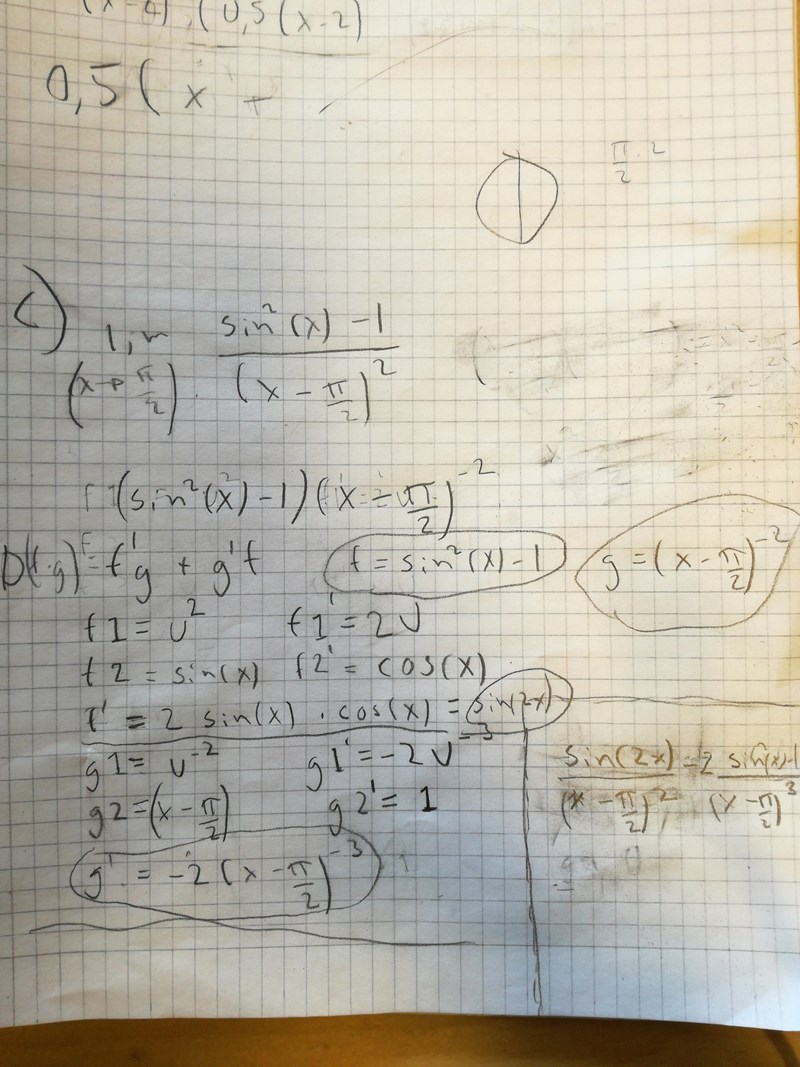 (x-4) · (0,5(x-2)
0,5( x +
π/2 · 2
c) lim (x→π/2) (sin²(x) - 1) / (x - π/2)²
(sin²(x) - 1) (x - π/2)⁻²
D(f·g) = f'g + g'f f = sin²(x) - 1 g = (x - π/2)⁻²
f1 = u² f1' = 2u
f2 = sin(x) f2' = cos(x)
f' = 2 sin(x) · cos(x) = sin(2x)
g1 = u⁻² g1' = -2u⁻³
g2 = (x - π/2) g2' = 1
g' = -2 (x - π/2)⁻³
sin(2x) / (x - π/2)² - 2 sin²(x)-1 / (x - π/2)³